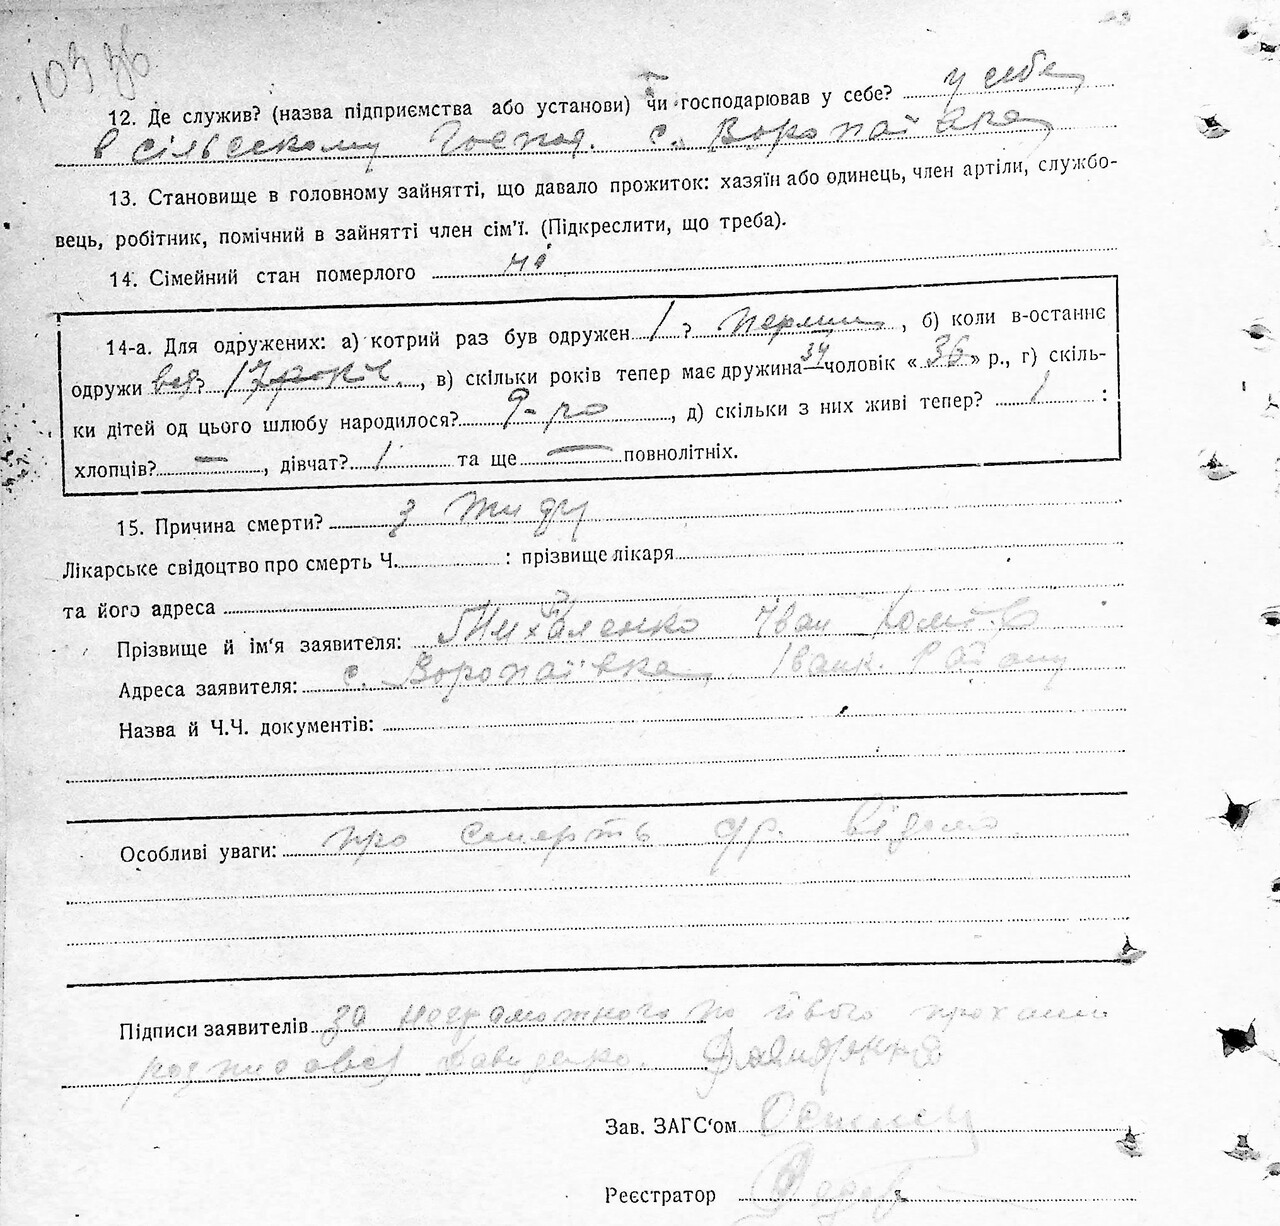 103 зв
12. Де служив? (назва підприємства або установи) чи господарював у себе? у себе
в сільському господ. с. Воропаївка
13. Становище в головному зайнятті, що давало прожиток: хазяїн або одинець, член артіли, службо-
вець, робітник, помічний в зайнятті член сім'ї. (Підкреслити, що треба).
14. Сімейний стан померлого
14-а. Для одружених: а) котрий раз був одружен 1 ? первий, б) коли в-останнє
одружи вся? 17 років, в) скільки років тепер має дружина 34 —чоловік « 36 » р., г) скіль-
ки дітей од цього шлюбу народилося? 9-ро, д) скільки з них живі тепер? 1 :
хлопців? —, дівчат? 1 та ще — повнолітніх.
15. Причина смерти? з
Лікарське свідоцтво про смерть Ч. : прізвище лікаря
та його адреса
Прізвище й ім'я заявителя: Михаленко Іван
Адреса заявителя: с. Воропаївка, Іванк. Району
Назва й Ч.Ч. документів:
Особливі уваги: про смерть с/р. відомо
Підписи заявителів за неграмотного по його прохані
розписався Давиденко.
Зав. ЗАГС'ом
Реєстратор